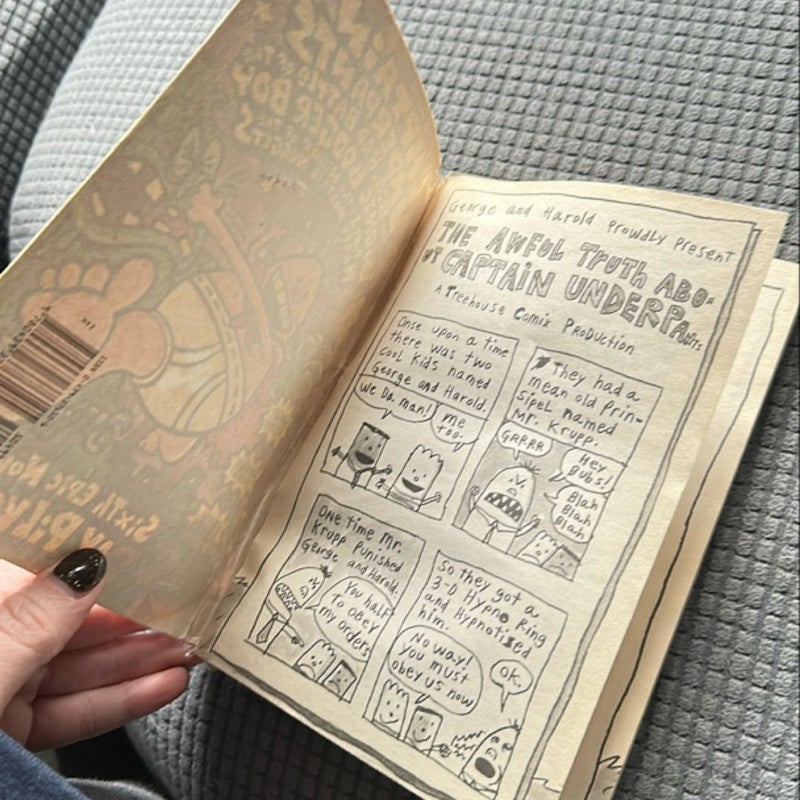 George and Harold Prowdly Present
THE AWFUL Truth ABO-
UT CAPTAIN UNDERPANTS
A Treehouse Comix Production
Once upon a time
there was two
cool kids named
George and Harold.
We Da man!
me
too.
They had a
mean old Prin-
sipel named
Mr. Krupp.
GRRRR
Hey
Bubs!
Blah
Blah
Blah
One time Mr.
Krupp Punished
George and Harold.
You haff
To obey
my orders
So they got a
3-D Hypno Ring
and Hypnotised
him.
No way!
You must
obey us now
OK.
BOOGER BOY
SIXTH EPIC NO